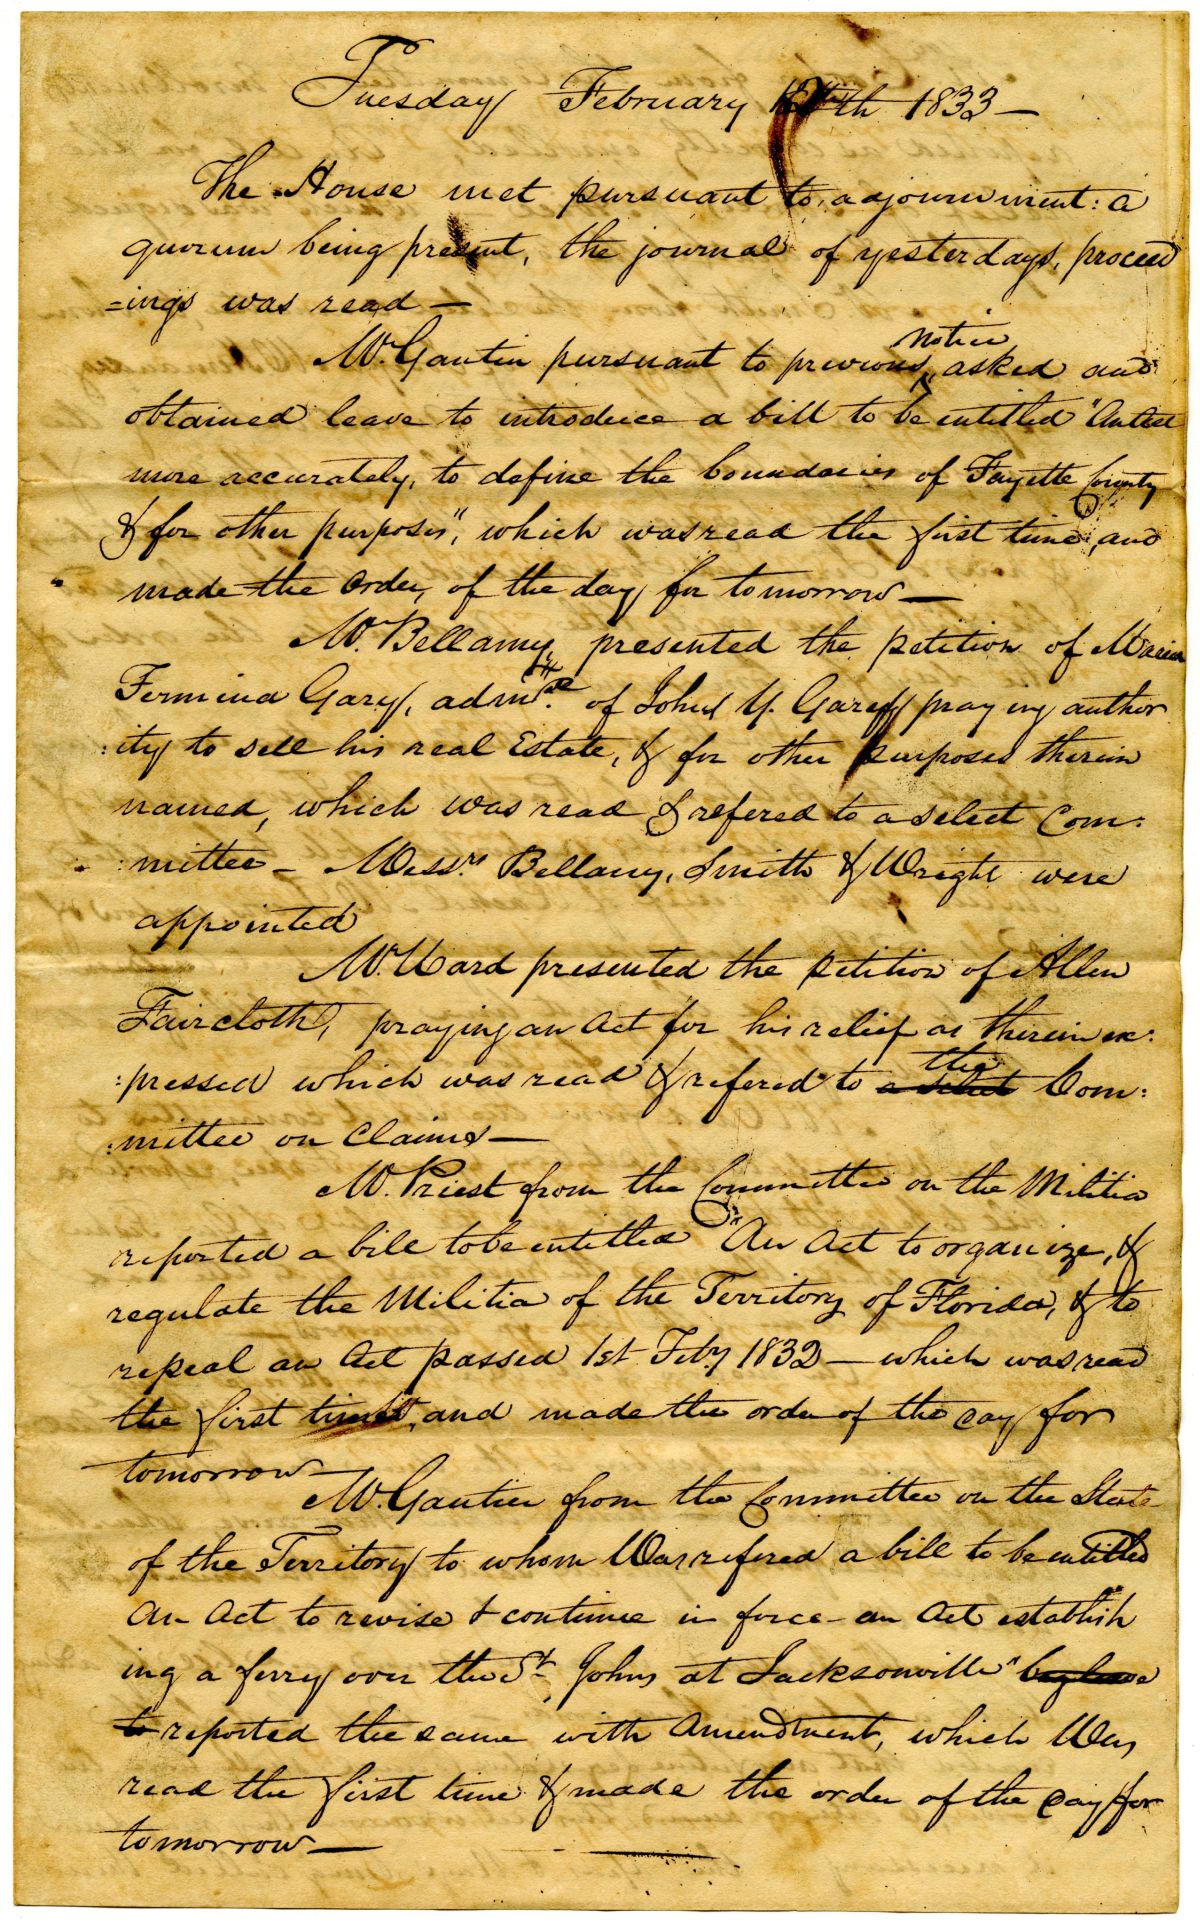 Tuesday February 12th 1833 —
The House met pursuant to adjournment: a
quorum being present, the journal of yesterdays, proceed
=ings was read —
notice
Mr. Gautier pursuant to previous ^ asked and
obtained leave to introduce a bill to be entitled "An Act
more accurately, to define the boundaries of Fayette County
& for other purposes", which was read the first time, and
made the order, of the day for tomorrow —
Mr. Bellamy, presented the petition of Maria
Fermina Gary, adm of John Y. Gary praying author
:ity to sell his real Estate, & for other purposes therein
named, which was read & refered to a select Com:
:mittee — Messrs. Bellamy, Smith & Wright were
appointed
Mr. Ward presented the petition of Allen
Faircloth, praying an act for his relief as therein ex:
the
:pressed which was read & refered to a select Com:
:mittee on Claims —
Mr. Priest from the Committee on the Militia
reported a bill to be entitled "An Act to organize, &
regulate the Militia of the Territory of Florida, & to
repeal an Act passed 1st Feby 1832 — which was read
the first time, and made the order of the day for
tomorrow —
Mr. Gautier from the Committee on the State
of the Territory to whom Was refered a bill to be entitled
An Act to revise & continue in force an Act establish
ing a ferry over the St. Johns at Jacksonville" beg leave
to reported the same with Amendment, which Was
read the first time & made the order of the day for
tomorrow —